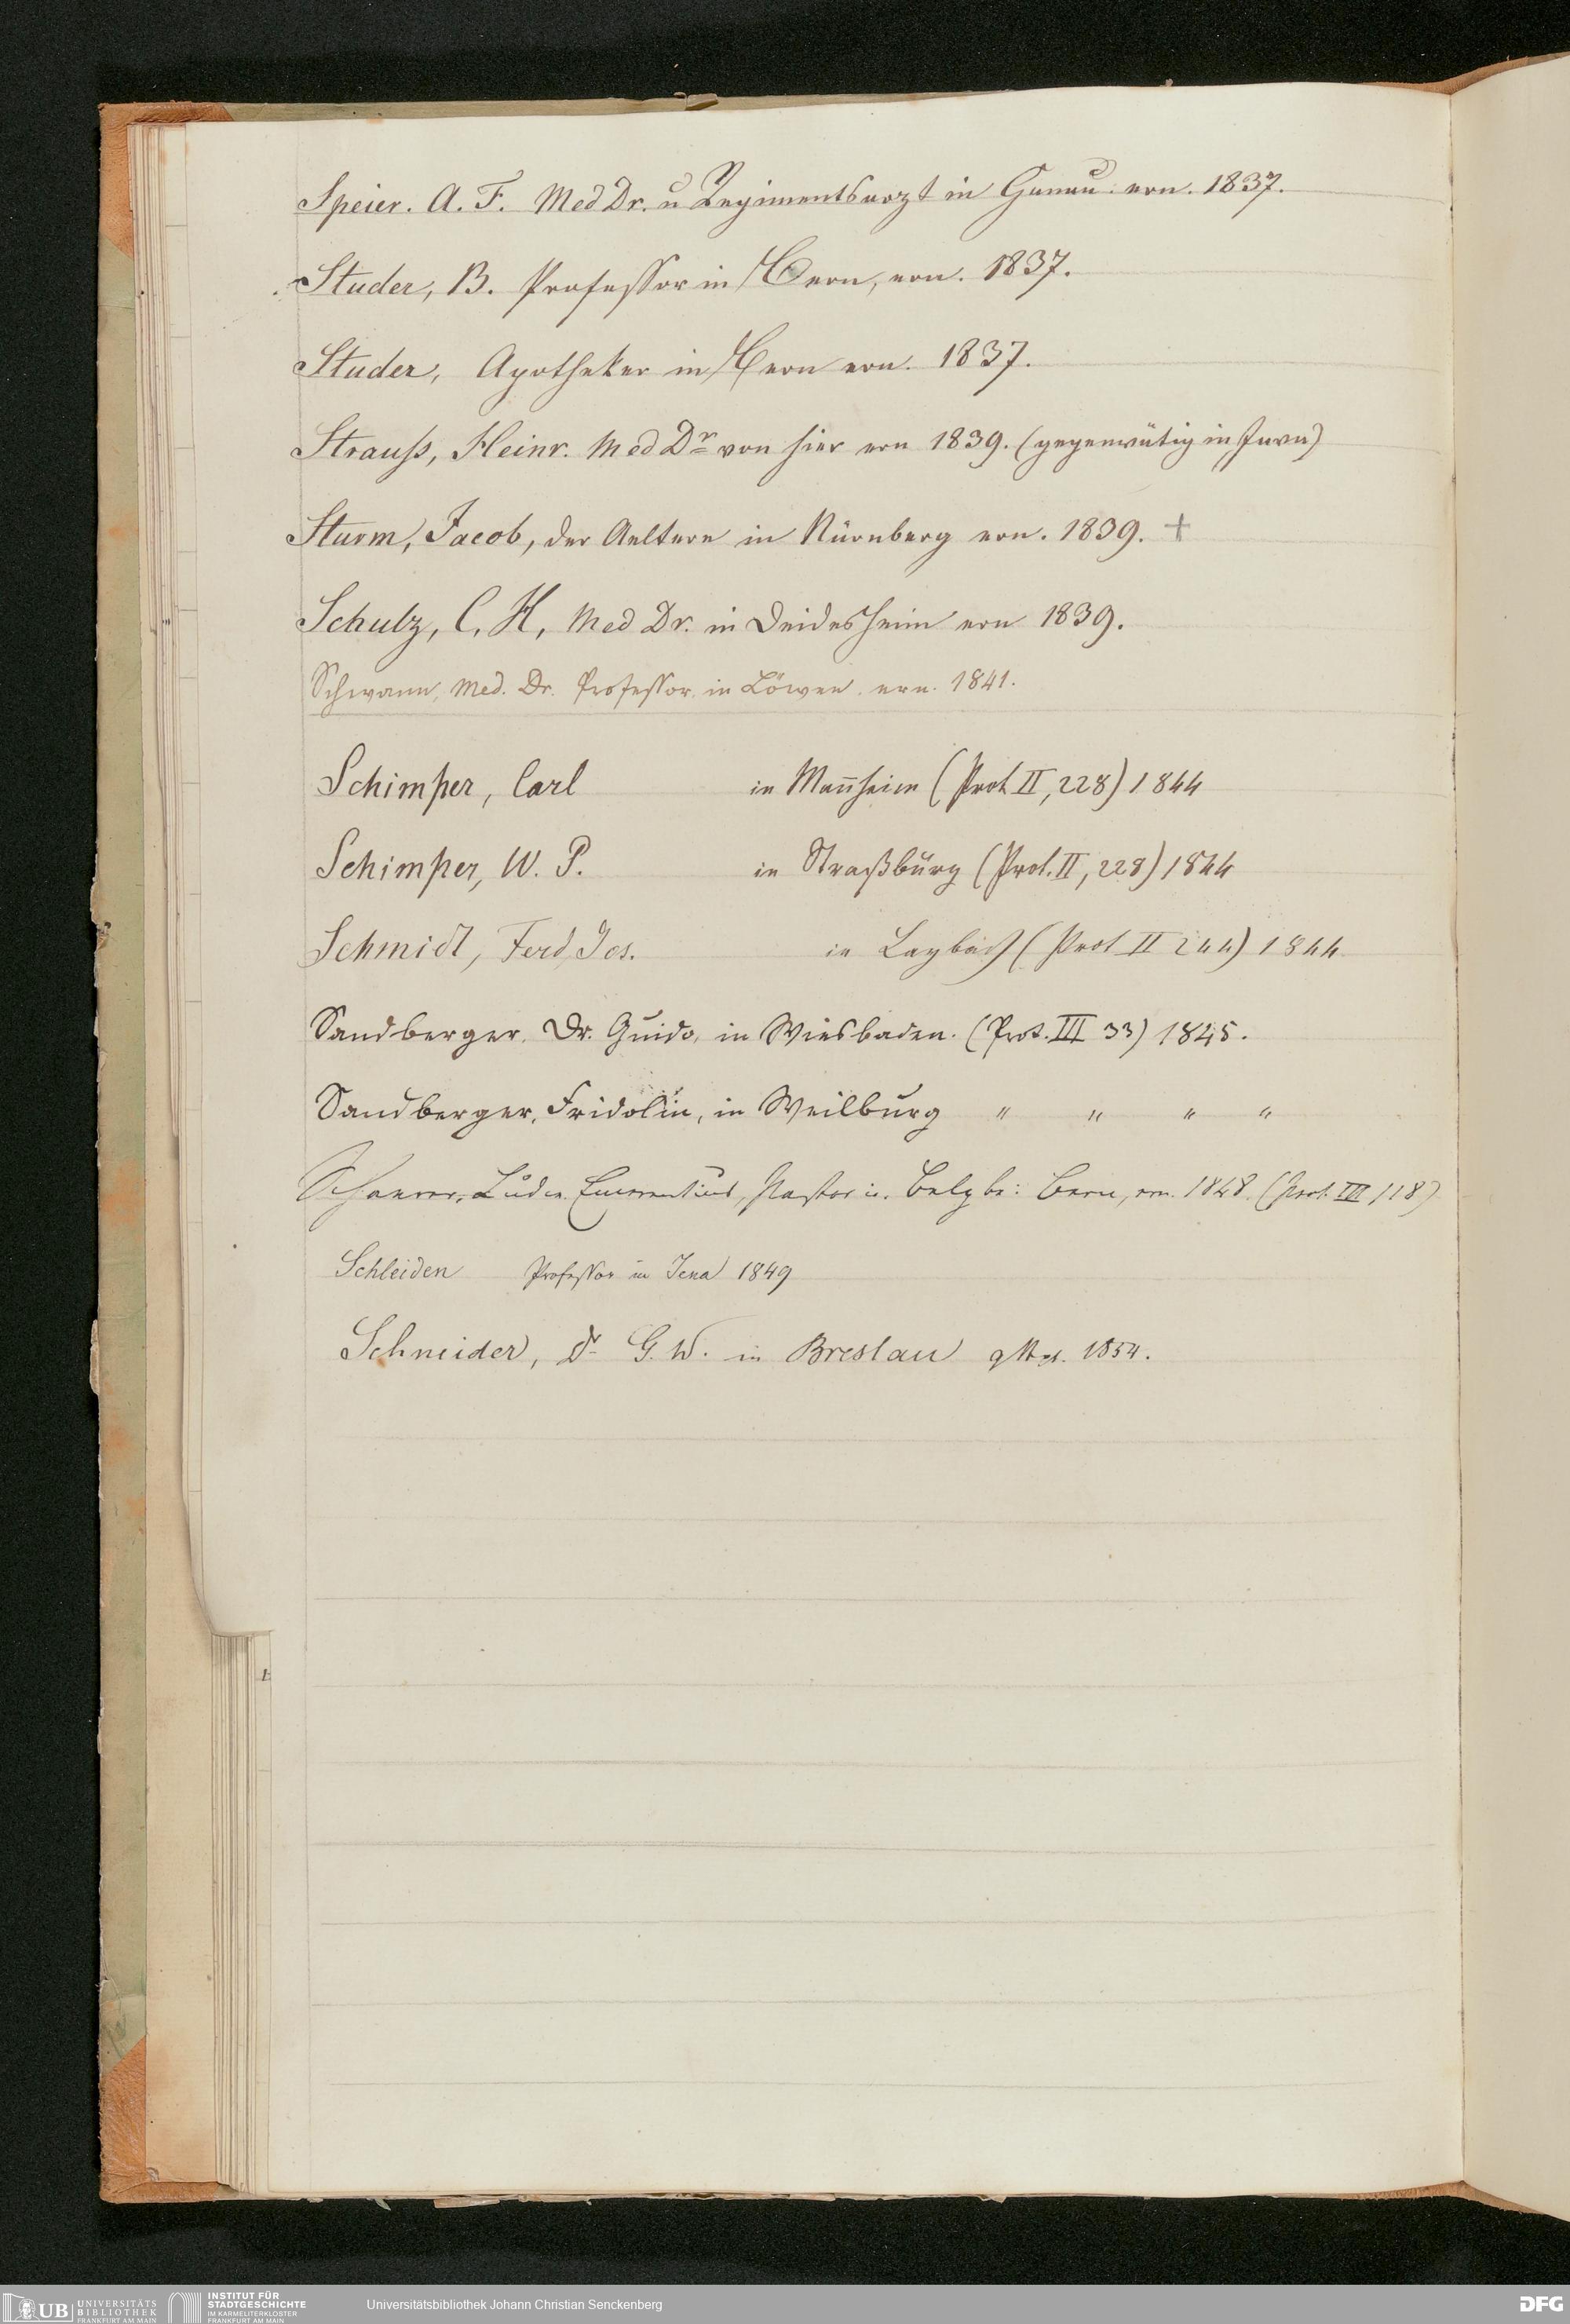 Speier. A. F. Med Dr. u Regimentsarzt in Hanau. ern. 1837.
Studer, B. Professor in Bern, ern. 1837.
Studer, Apotheker in Bern ern. 1837.
Strauss, Heinr. Med Dr von hier ern 1839. (gegenwätig in Java)
Sturm, Jacob, der Aeltere in Nürnberg ern. 1839. +
Schulz, C. H, Med Dr. in Deidesheim ern 1839.
Schwann, Med. Dr. Professor in Löwen. ern. 1841.
Schimper, Carl in Man̄heim (Prot II, 228) 1844
Schimper, W. P. in Straßburg (Prot. II, 228) 1844
Schmidt, Ferd Jos. in Laybach (Prot II 244) 1844
Sandberger, Dr. Guido, in Wiesbaden. (Prot. III 33) 1845.
Sandberger, Fridolin, in Weilburg " " " "
Schaerer, Pastor in Belp bei Bern, ern. 1848. (Prot. III 118)
Schleiden Professor in Jena 1849
Schneider, Dr G. W. in Breslau 1854.
UB UNIVERSITÄTS BIBLIOTHEK FRANKFURT AM MAIN
INSTITUT FÜR STADTGESCHICHTE IM KARMELITERKLOSTER FRANKFURT AM MAIN
Universitätsbibliothek Johann Christian Senckenberg
DFG